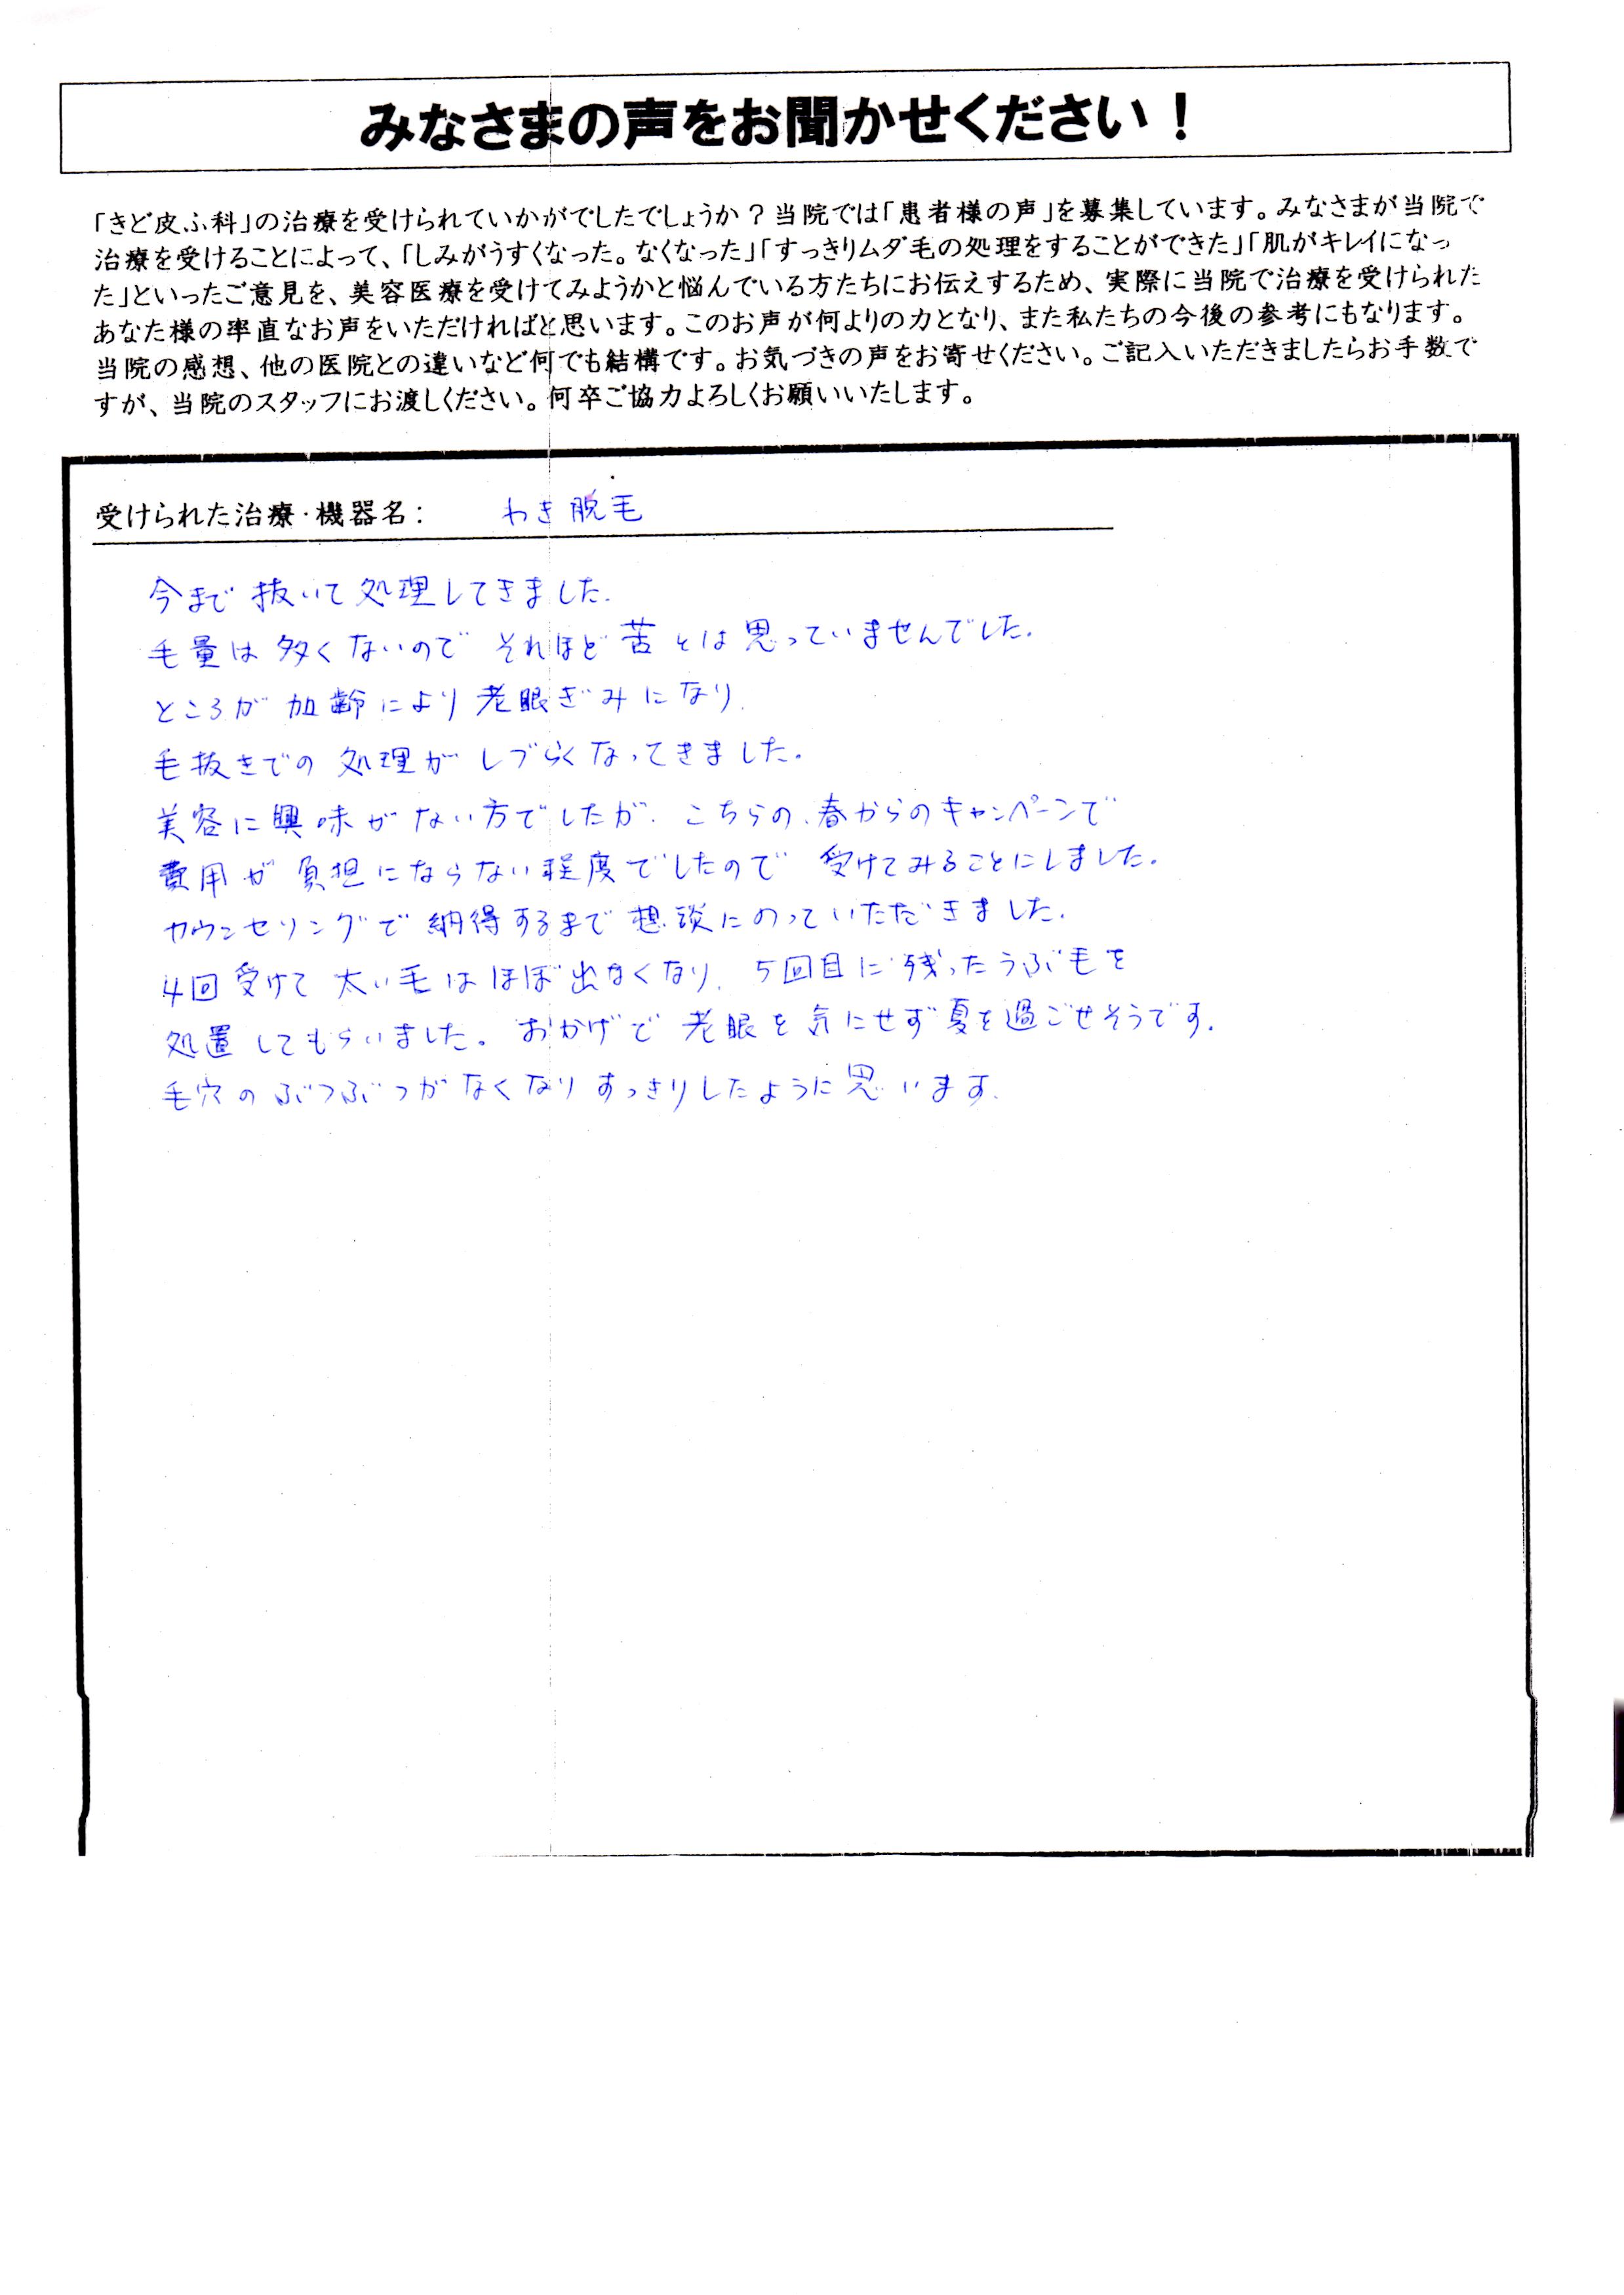 みなさまの声をお聞かせください！
「きど皮ふ科」の治療を受けられていかがでしたでしょうか？当院では「患者様の声」を募集しています。みなさまが当院で
治療を受けることによって、「しみがうすくなった。なくなった」「すっきりムダ毛の処理をすることができた」「肌がキレイになっ
た」といったご意見を、美容医療を受けてみようかと悩んでいる方たちにお伝えするため、実際に当院で治療を受けられた
あなた様の率直なお声をいただければと思います。このお声が何よりの力となり、また私たちの今後の参考にもなります。
当院の感想、他の医院との違いなど何でも結構です。お気づきの声をお寄せください。ご記入いただきましたらお手数で
すが、当院のスタッフにお渡しください。何卒ご協力よろしくお願いいたします。
受けられた治療・機器名： わき脱毛
今まで抜いて処理してきました。
毛量は多くないので それほど苦とは思っていませんでした。
ところが加齢により老眼ぎみになり、
毛抜きでの処理がしづらくなってきました。
美容に興味がない方でしたが、こちらの、春からのキャンペーンで
費用が負担にならない程度でしたので 受けてみることにしました。
カウンセリングで納得するまで想談にのっていただきました。
4回受けて太い毛はほぼ出なくなり、5回目に残ったうぶ毛を
処置してもらいました。おかげで老眼を気にせず夏を過ごせそうです。
毛穴のぶつぶつがなくなりすっきりしたように思います。